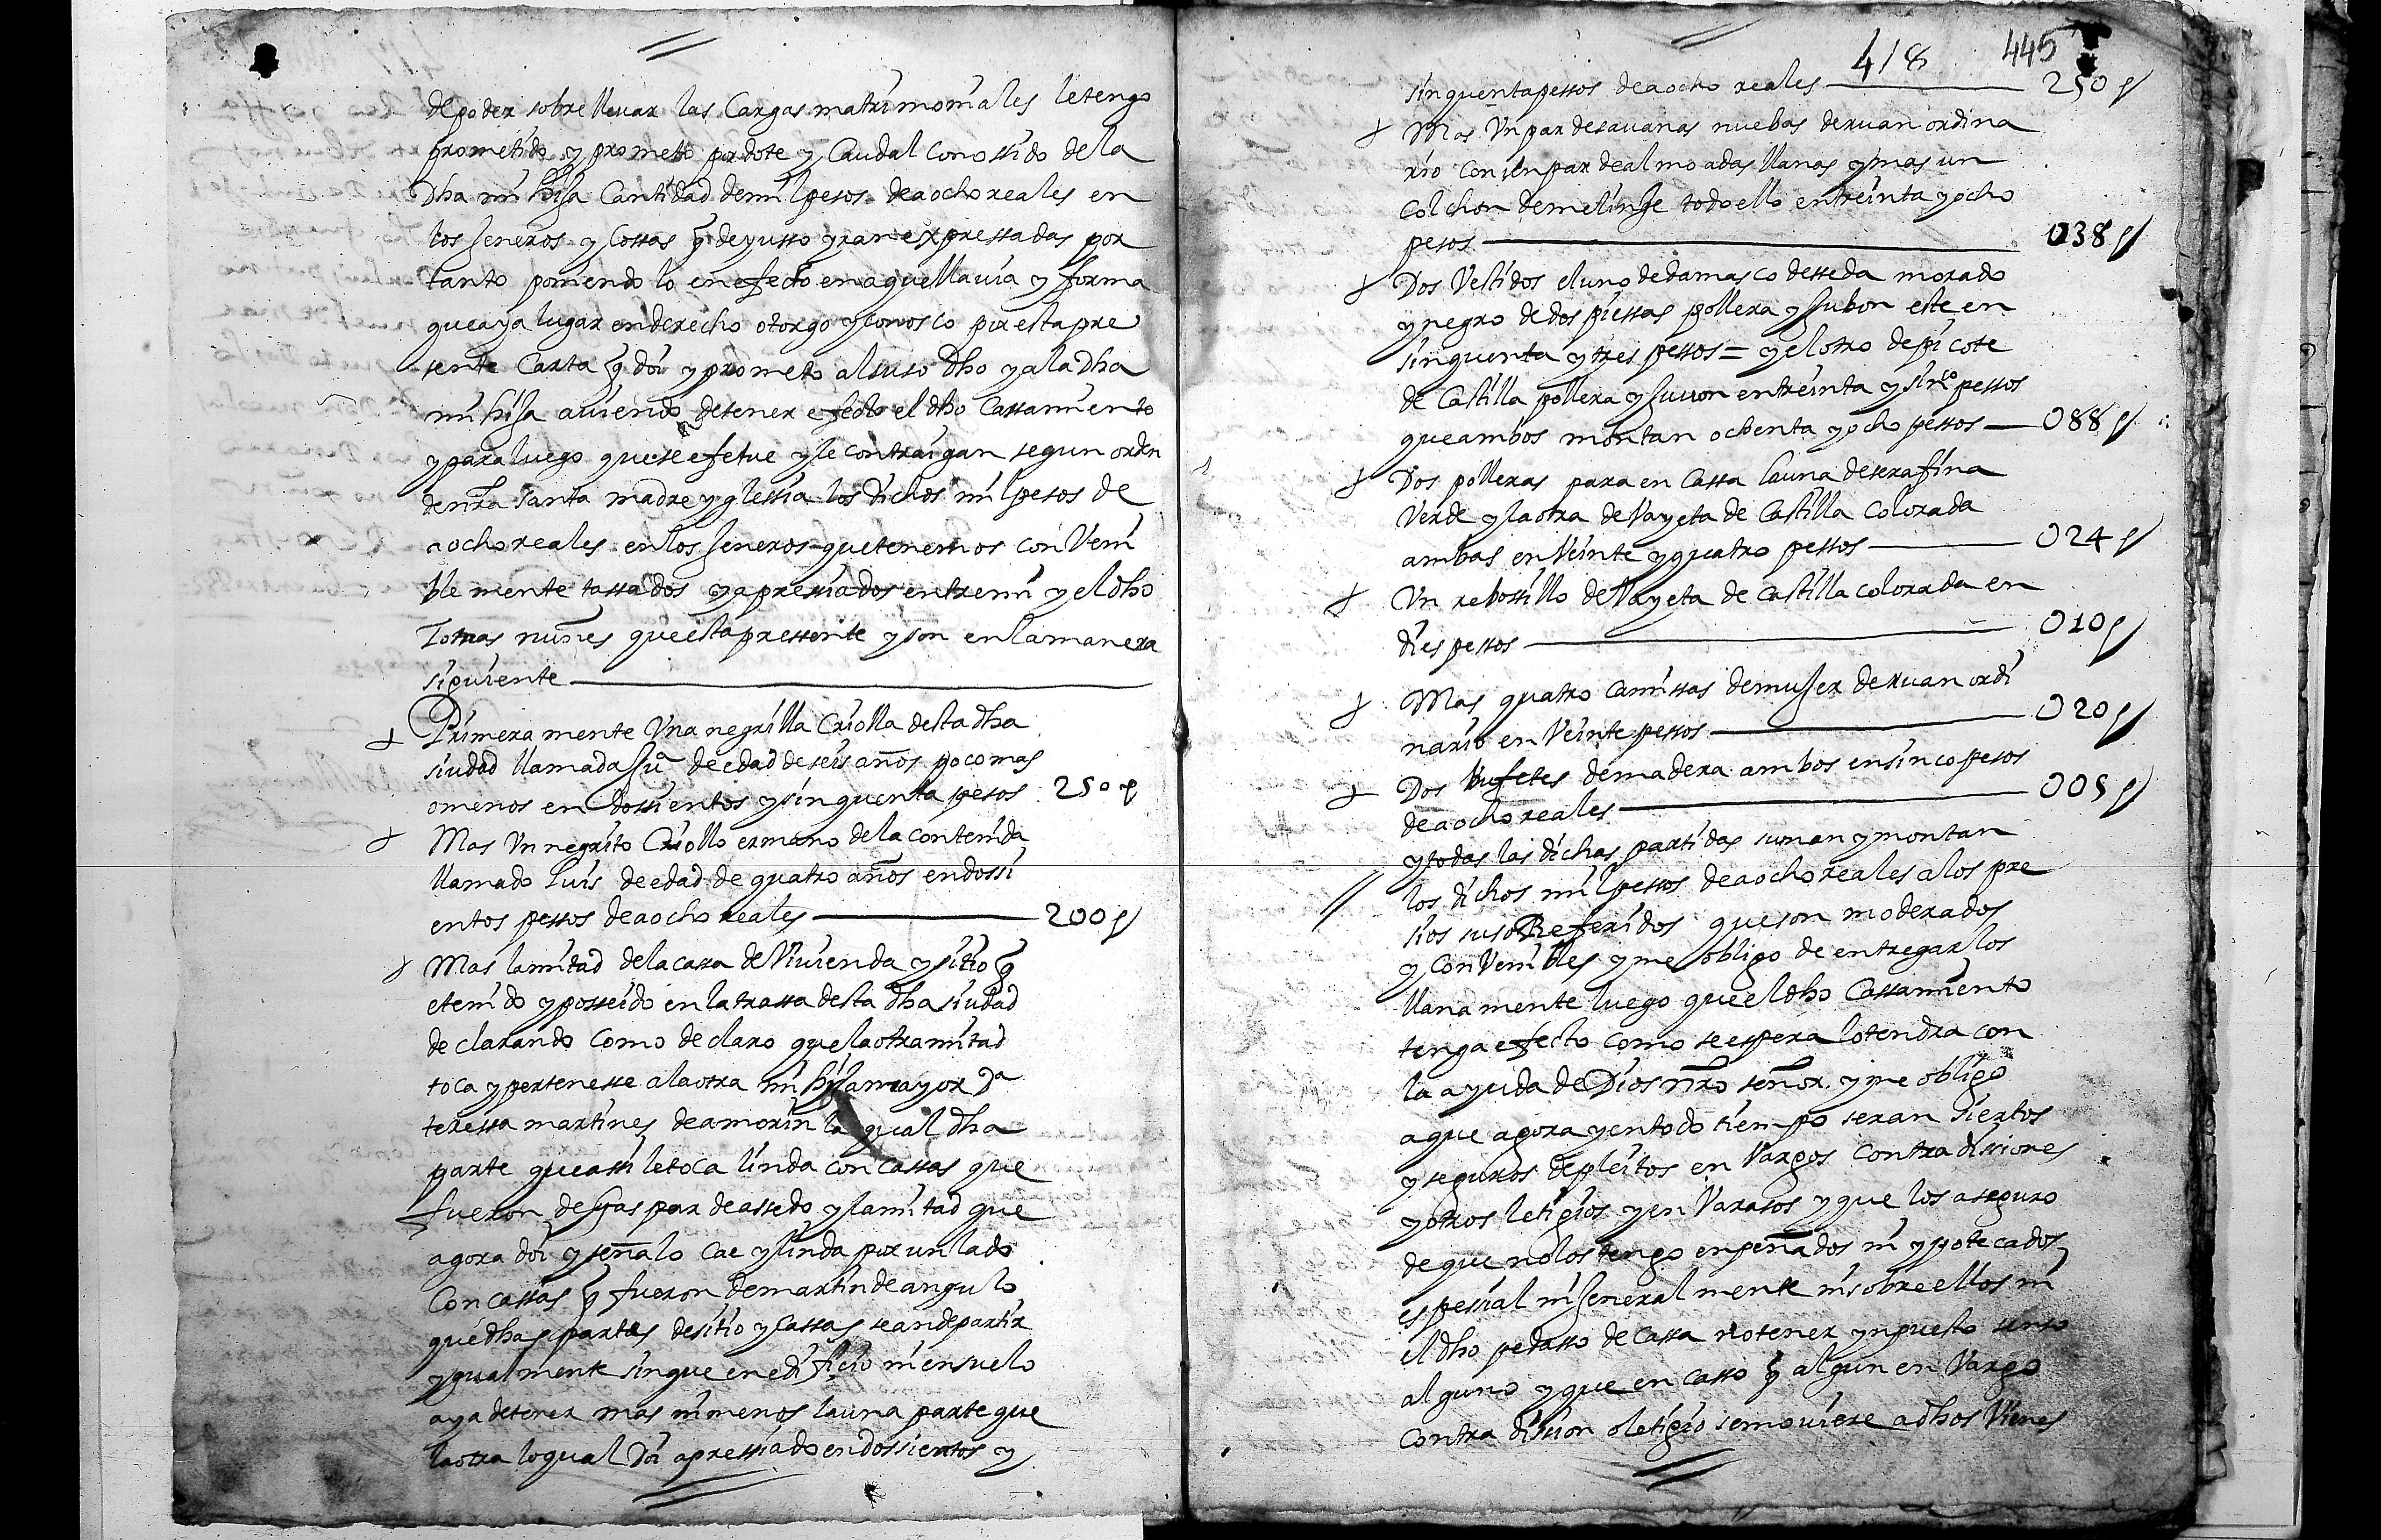 de poder sobrellevar las Cargas matrimoniales le tengo
prometido y prometo por dote y Caudal Conossido de la
Dha mi hija Cantidad de mil pesos de a ocho reales en
los jeneros y Cossas q̃ de yusso yran expressadas por
tanto poniendo lo en efecto en aquella via y forma
que aya lugar en derecho otorgo y conosco por esta pre
sente Carta q̃ doi y prometo al suso dho y a la dha
mi hija aviendo de tener efecto el dho Cassamiento
y para luego que se efetue y le contraigan segun orden
de nra santa madre yglessia los dichos mil pesos de
a ocho reales en los jeneros que tenemos conveni
ble mente tassados y apressiados entre mi y el dho
Tomas nuñes que esta pressente y son en la manera
siguiente
Primera mente Una negrilla Criolla desta dha
siudad llamada Juª de edad de seis años poco mas
o menos en dossientos y sinquenta pesos 250 p
Mas Un negrito Criollo ermano de la contenida
llamado luis de edad de quatro años en dossi
entos pessos de a ocho reales 200 p
Mas la mitad de la cassa de Vivienda y sitio q̃
e tenido y posseido en la trassa desta dha siudad
declarando Como declaro que la otra mitad
toca y pertenesse a la otra mi hija mayor Dª
teressa martines de amorin la qual dha
parte que assi le toca linda con cassas que
fueron de gaspar de assedo y la mitad que
agora doi y señalo cae y linda por un lado
Con cassas q̃ fueron de martin de angulo
que dhas partes de sitio y cassas se an de partir
ygualmente sin que en edificio ni en suelo
aya de tener mas ni menos la una parte que
la otra lo qual Doi apressiado en dossientos y
418 445
sinquenta pessos de a ocho reales 250 p
Mas Un par de savanas nuebas de ruan ordina
rio con un par de almoadas llanas y mas un
colchon de melinje todo ello en treinta y ocho
pesos 038 p
Dos Vestidos el uno de damasco de sseda morado
y negro de dos piessas pollera y jubon este en
sinquenta y tres pessos = y el otro de picote
de Castilla pollera y juvon en treinta y sinco pessos
que ambos montan ochenta y ocho pessos 088 p
Dos polleras para en Cassa la una de serafina
Verde y la otra de Vayeta de Castilla Colorada
ambas en Veinte y quatro pessos 024 p
Un rebossillo de Vayeta de Castilla colorada en
dies pessos 010 p
Mas quatro camissas de mujer de ruan ordi
nario en Veinte pessos 020 p
Dos bufetes de madera ambos en sinco pesos
de a ocho reales 005 p
y todas las dichas partidas suman y montan
los dichos mil pessos de a ocho reales a los pre
sios suso Referidos que son moderados
y ConVenibles y me obligo de entregarlos
llanamente luego que el dho Cassamiento
tenga efecto como se espera lo tendra con
la ayuda de Dios nro señor y me obligo
a que agora y en todo tiempo seran siertos
y seguros de pleitos en Vargos Contradisiones
y otros letigios y en Varasos y que los aseguro
de que no los tengo enpeñados ni ypotecados
espesial ni jeneralmente ni sobre ellos ni
el dho pedasso de Cassa no tener ynpuesto senso
alguno y que en casso q̃ algun en Vargo
Contradision o letigio se moviere a dhos Vienes